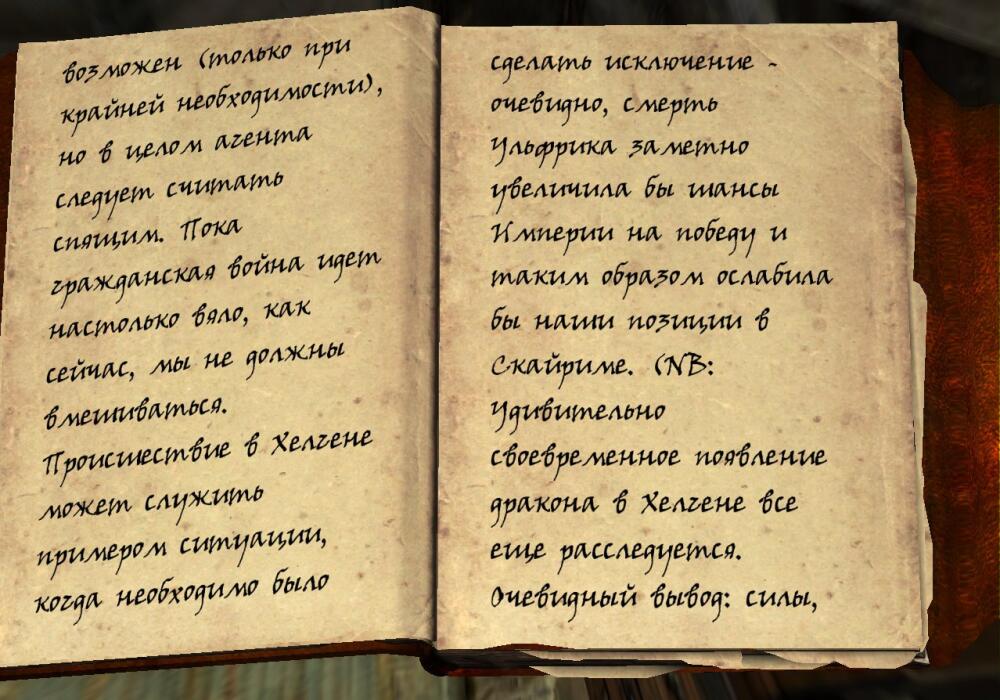 возможен (только при
крайней необходимости),
но в целом агента
следует считать
спящим. Пока
гражданская война идет
настолько вяло, как
сейчас, мы не должны
вмешиваться.
Происшествие в Хелгене
может служить
примером ситуации,
когда необходимо было
сделать исключение -
очевидно, смерть
Ульфрика заметно
увеличила бы шансы
Империи на победу и
таким образом ослабила
бы наши позиции в
Скайриме. (NB:
Удивительно
своевременное появление
дракона в Хелгене все
еще расследуется.
Очевидный вывод: силы,